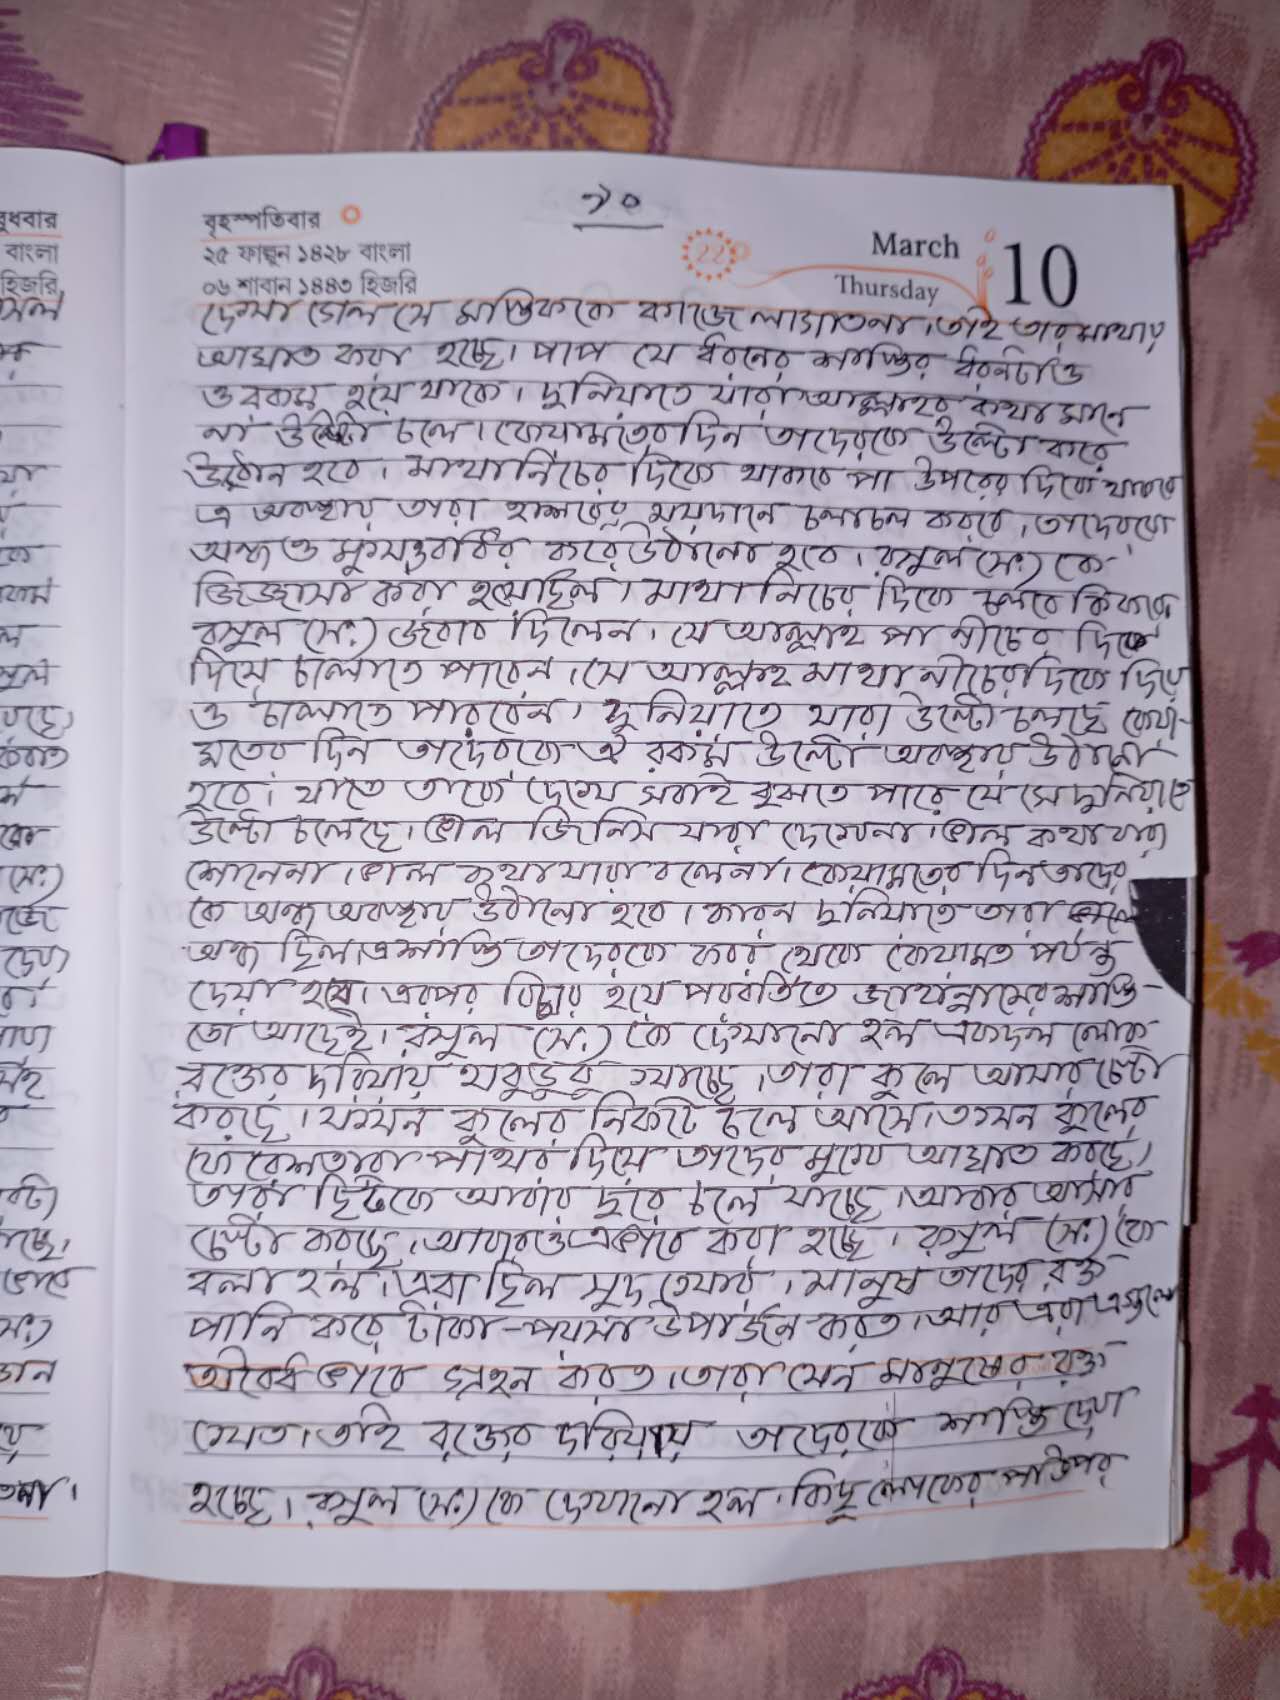 ১০
বৃহস্পতিবার
২৫ ফাল্গুন ১৪২৮ বাংলা
০৬ শাবান ১৪৪৩ হিজরি
22
March
Thursday
10
বুধবার
বাংলা
হিজরি
দেখা গেল সে মস্তিককে কাজে লাগাতনা। তাই তার মাথায়
আঘাত করা হচ্ছে। পাপ যে ধরনের শাস্তির ধরনটাও
ওরকম হয়ে থাকে। দুনিয়াতে যারা আল্লাহর কথা মানে
না উল্টো চলে। কেয়ামতের দিন তাদেরকে উল্টো করে
উঠান হবে। মাথা নিচের দিকে থাকবে পা উপরের দিকে থাকবে
এ অবস্থায় তারা হাশরের ময়দানে চলাচল করবে। তাদেরকে
অন্ধ ও মুখ বধির করে উঠানো হবে। রসুল (সঃ) কে
জিজ্ঞাসা করা হয়েছিল। মাথা নিচের দিকে চলবে কিভাবে
রসুল (সঃ) জবাব দিলেন। যে আল্লাহ পা নীচের দিকে
দিয়ে চালাতে পারেন। সে আল্লাহ মাথা নীচের দিকে দিয়ে
ও চালাতে পারবেন। দুনিয়াতে যারা উল্টো চলছে কেয়া-
মতের দিন তাদেরকে ঐ রকম উল্টো অবস্থায় উঠানো
হবে। যাতে তাকে দেখে সবাই বুঝতে পারে যে সে দুনিয়াতে
উল্টো চলেছে। ভাল জিনিস যারা দেখেনা। ভাল কথা যারা
শোনেনা। ভাল কথা যারা বলেনা। কেয়ামতের দিন তাদের
কে অন্ধ অবস্থায় উঠানো হবে। কারন দুনিয়াতে তারা
অন্ধ ছিল। এ শাস্তি তাদেরকে কবর থেকে কেয়ামত পর্যন্ত
দেয়া হবে। এরপর বিচার হয়ে পরবর্তিতে জাহান্নামের শাস্তি-
তো আছেই। রসুল (সঃ) কে দেখানো হল একদল লোক
রক্তের দরিয়ায় হাবুডুবু খাচ্ছে। তারা কুলে আসার চেষ্টা
করছে। যখন কুলের নিকটে চলে আসে। তখন কুলের
ফেরেশতারা পাথর দিয়ে তাদের মুখে আঘাত করছে।
তারা ছিটকে আবার দূরে চলে যাচ্ছে। আবার আসার
চেষ্টা করছে। আবারও এভাবে করা হচ্ছে। রসুল (সঃ) কে
বলা হল। এরা ছিল সুদ খোর। মানুষ তাদের রক্ত
পানি করে টাকা-পয়সা উপার্জন করত। আর এরা এগুলো
অবৈধ ভাবে গ্রহন করত। তারা যেন মানুষের রক্ত
খেত। তাই রক্তের দরিয়ায় তাদেরকে শাস্তি দেয়া
হচ্ছে। রসুল (সঃ) কে দেখানো হল। কিছু লোকের পাউপর